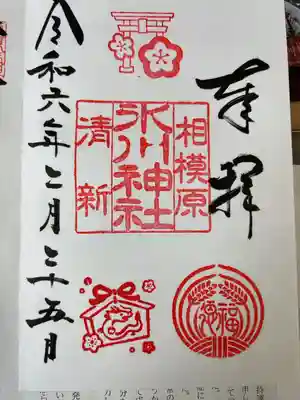 奉拝
相模原
氷川神社
清新
令和六年二月二十五日
福